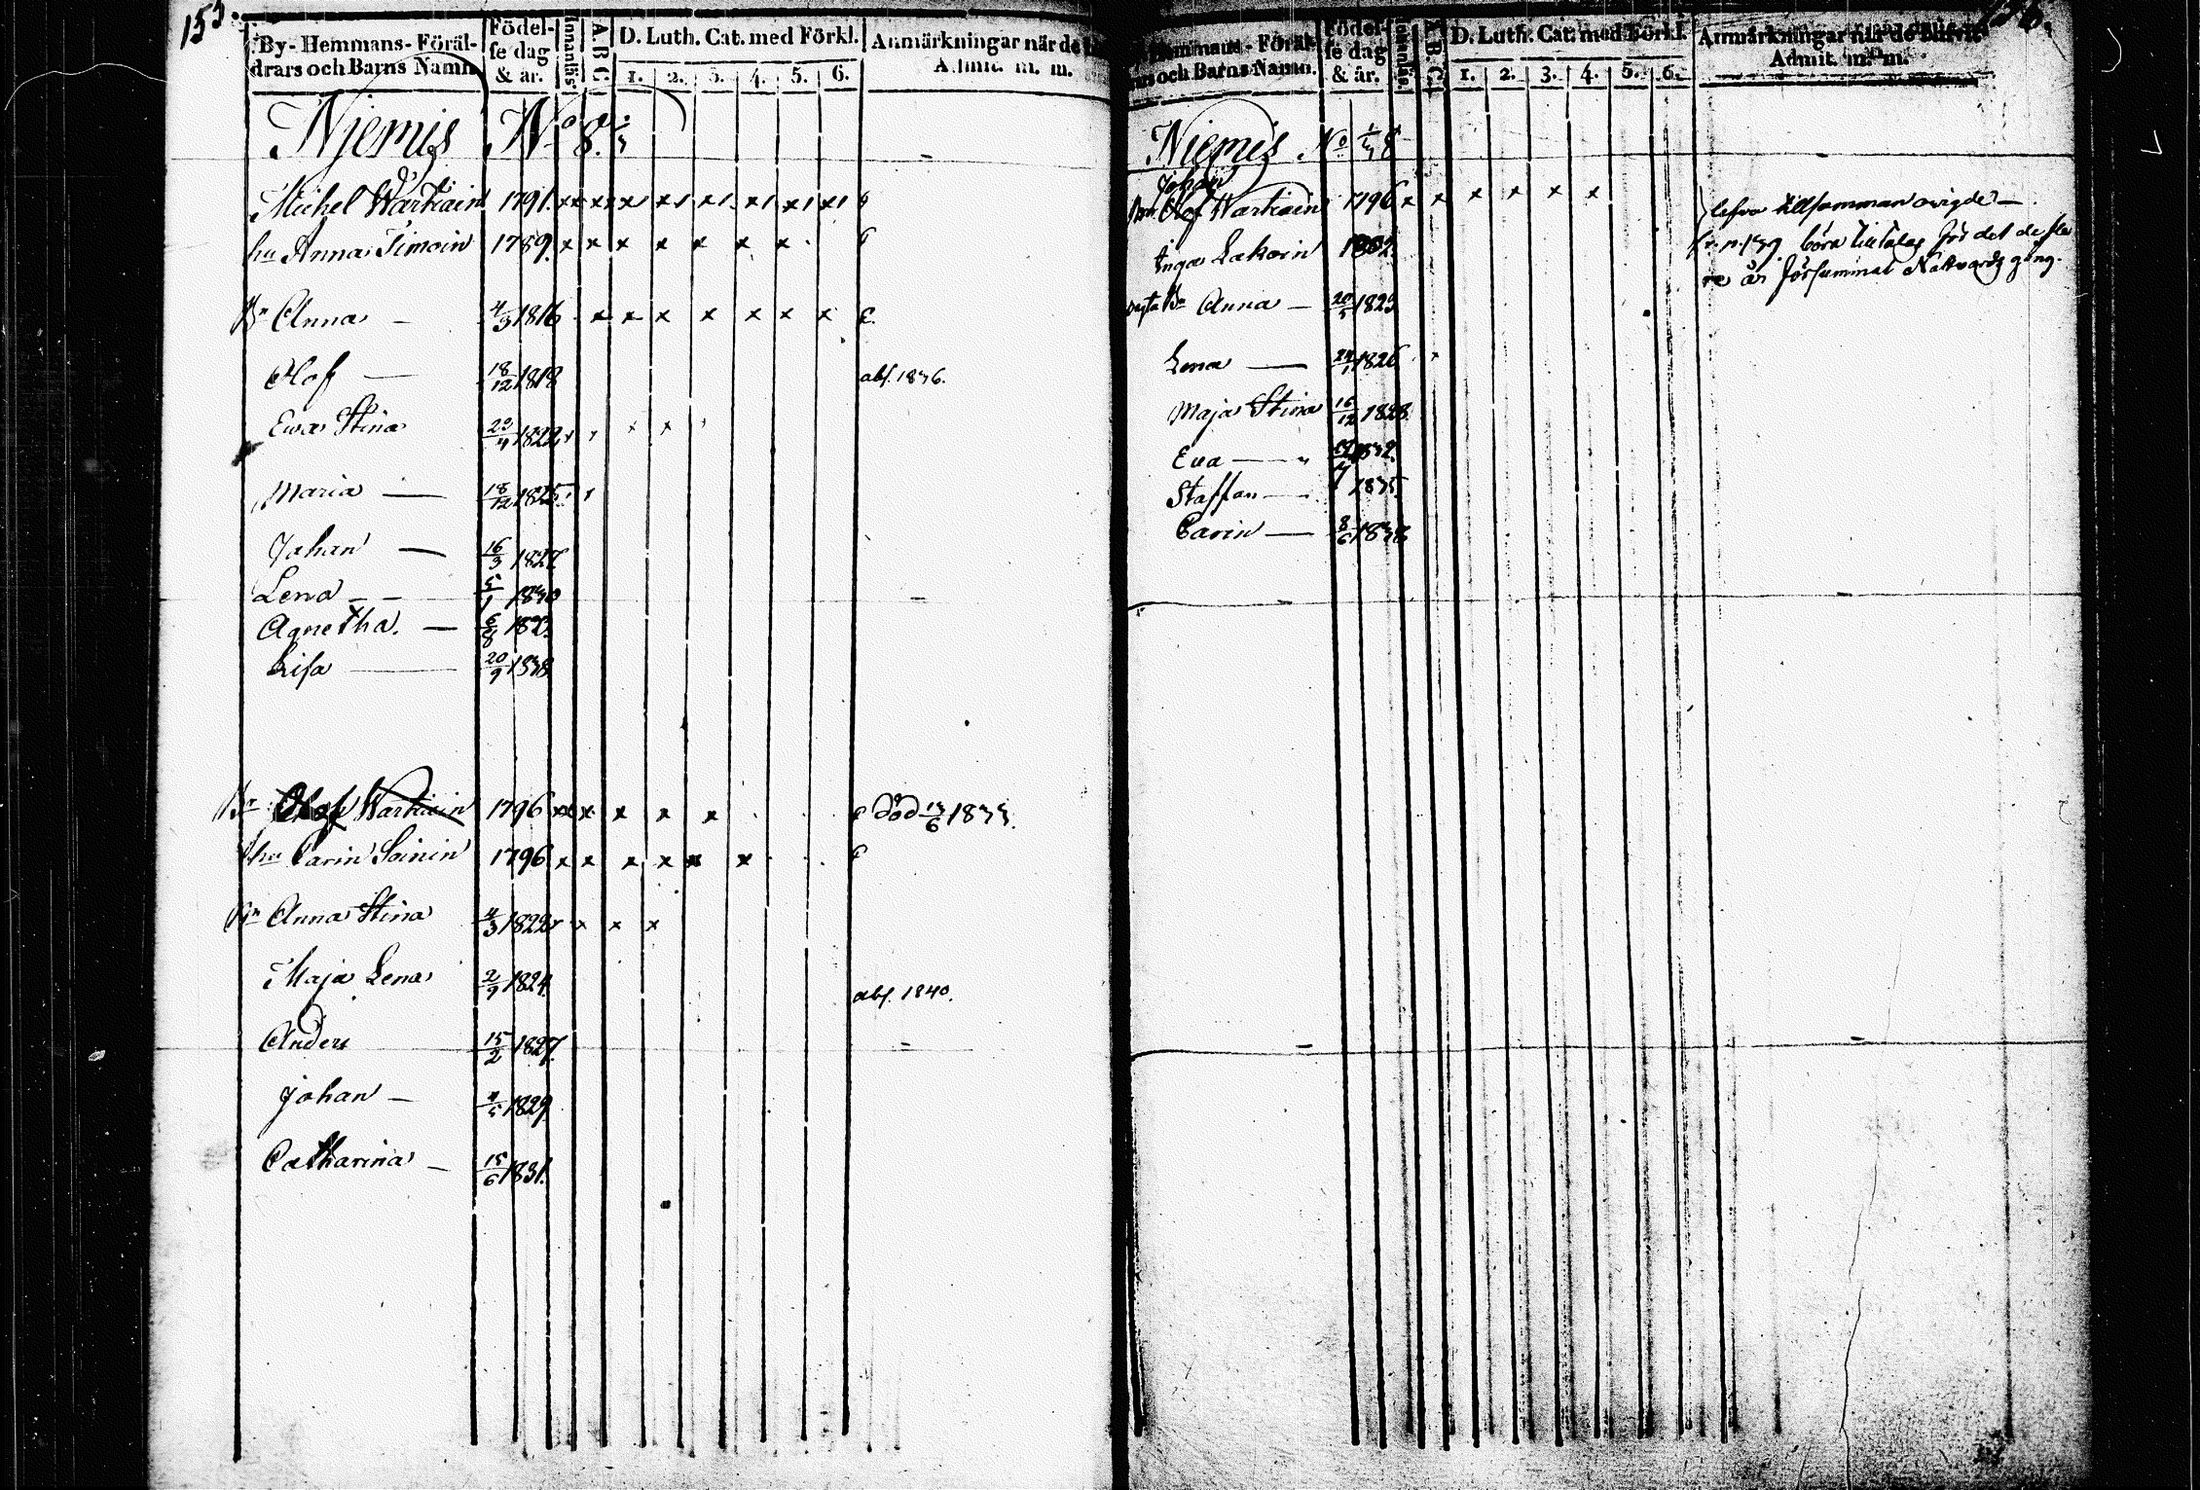 153.
By- Hemmans- Föräl-
drars och Barns Namn
Födel-
se dag
& år.
Innanläs
A B C
D. Luth. Cat. med Förkl.
1. 2. 3. 4. 5. 6.
Anmärkningar när de
Admit. m. m.
Njemis No 8.
Michel Wartiain 1791. x x x x x x x x x
hu Anna Timoin 1789. x x x x x x x
Bn Anna — 4/3 1816 x x x x x x x
Olof — 18/12 1818 abs. 1836.
Ewa Stina 23/4 1822
Maria — 18/12 1825
Johan — 16/3 1827
Lena — 5/1 1830
Agnetha. — 6/8 183
Lisa — 20/9 1838
Br Olof Wartiain 1796 x x x x x x död 13/6 1833.
hu Carin Soinin 1796 x x x x x x
Bn Anna Stina 4/3 1822 x x x
Maja Lena 2/9 1824. abs. 1840.
Anders 15/2 1827.
Johan — 4/5 1829
Catharina — 15/6 1831.
Hemmans- Föräl-
och Barns Namn.
Födel-
se dag
& år.
A. B. C.
D. Luth. Cat. med Förkl.
1. 2. 3. 4. 5. 6.
Anmärkningar när de blifvit
Admit. m. m.
Niemis No 8
Johan
Olof Wartiain 1796 x x x x x x lefva tillsamman ovigde —
Inga Lakoin 1802. böra tilltalas för det de fle
re år försummat Nattvards gång.
Bn Anna — 20/5 1823
Lena — 24/1 1826
Maja Stina 16/12 1828
Eva — 1832.
Staffan — 1835
Carin — 8/6 1838